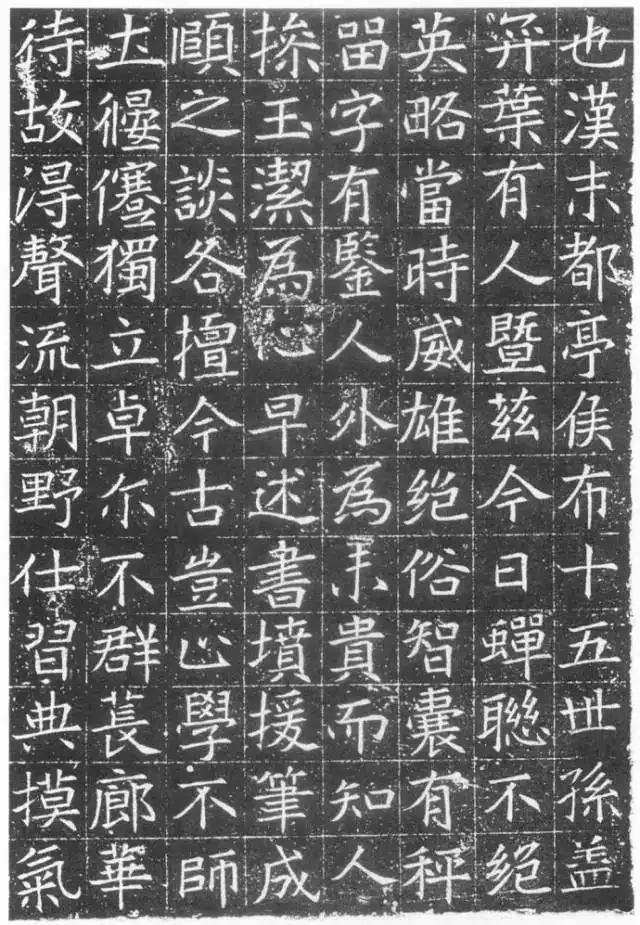 也漢末都亭侯布十五世孫盖
弈葉有人暨茲今日蟬聯不絕
英略當時威雄絕俗智囊有稱
留字有鑒人外為末貴而知人
操玉潔為心早述書墳援筆成
頤之談各擅今古豈止學不師
士偃蹇獨立卓尔不群萇廊華
待故得聲流朝野仕習典摸氣